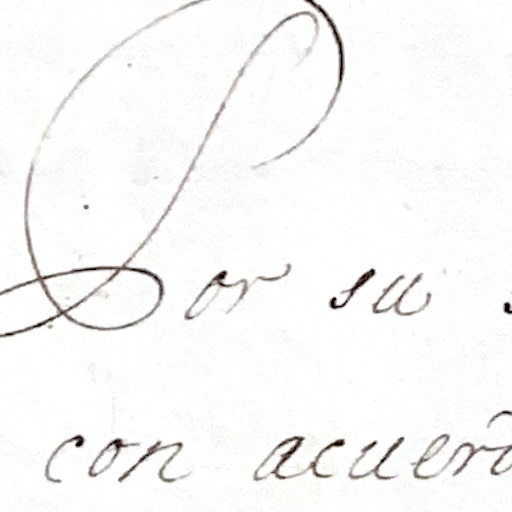 Por su
con acuerd